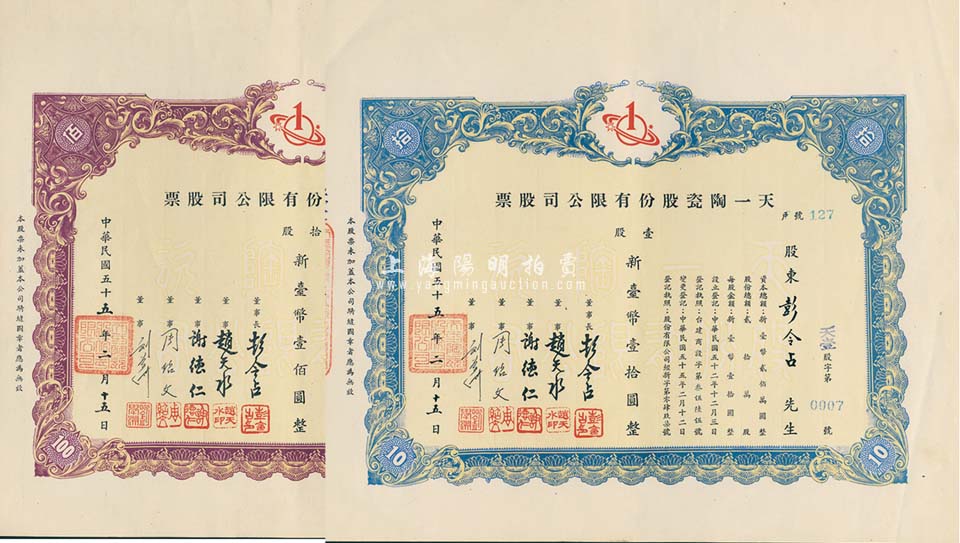 佰
1
票股司公限有份
拾股
新臺幣壹佰圓整
董事長 彭令占
董事 趙天水
董事 謝德仁
董事 周紹文
董事
中華民國五十五年二月十五日
本股票未加蓋本公司騎縫圖章者應為無效
100
拾
1
拾
票股司公限有份股瓷陶一天
戶號 127
股東 彭令占 先生
天壹股字第 0007 號
資本總額：新臺幣貳佰萬圓整
股份總額：貳拾萬股
每股金額：新臺幣壹拾圓整
設立登記：中華民國五十二年十二月三日
登記執照：台建商設字第叁伍陸伍號
變更登記：中華民國五十五年二月十二日
壹股
新臺幣壹拾圓整
董事長 彭令占
董事 趙天水
董事 謝德仁
董事 周紹文
董事
中華民國五十五年二月十五日
本股票未加蓋本公司騎縫圖章者應為無效
10
10
上海陽明拍賣
www.yangmingauction.com